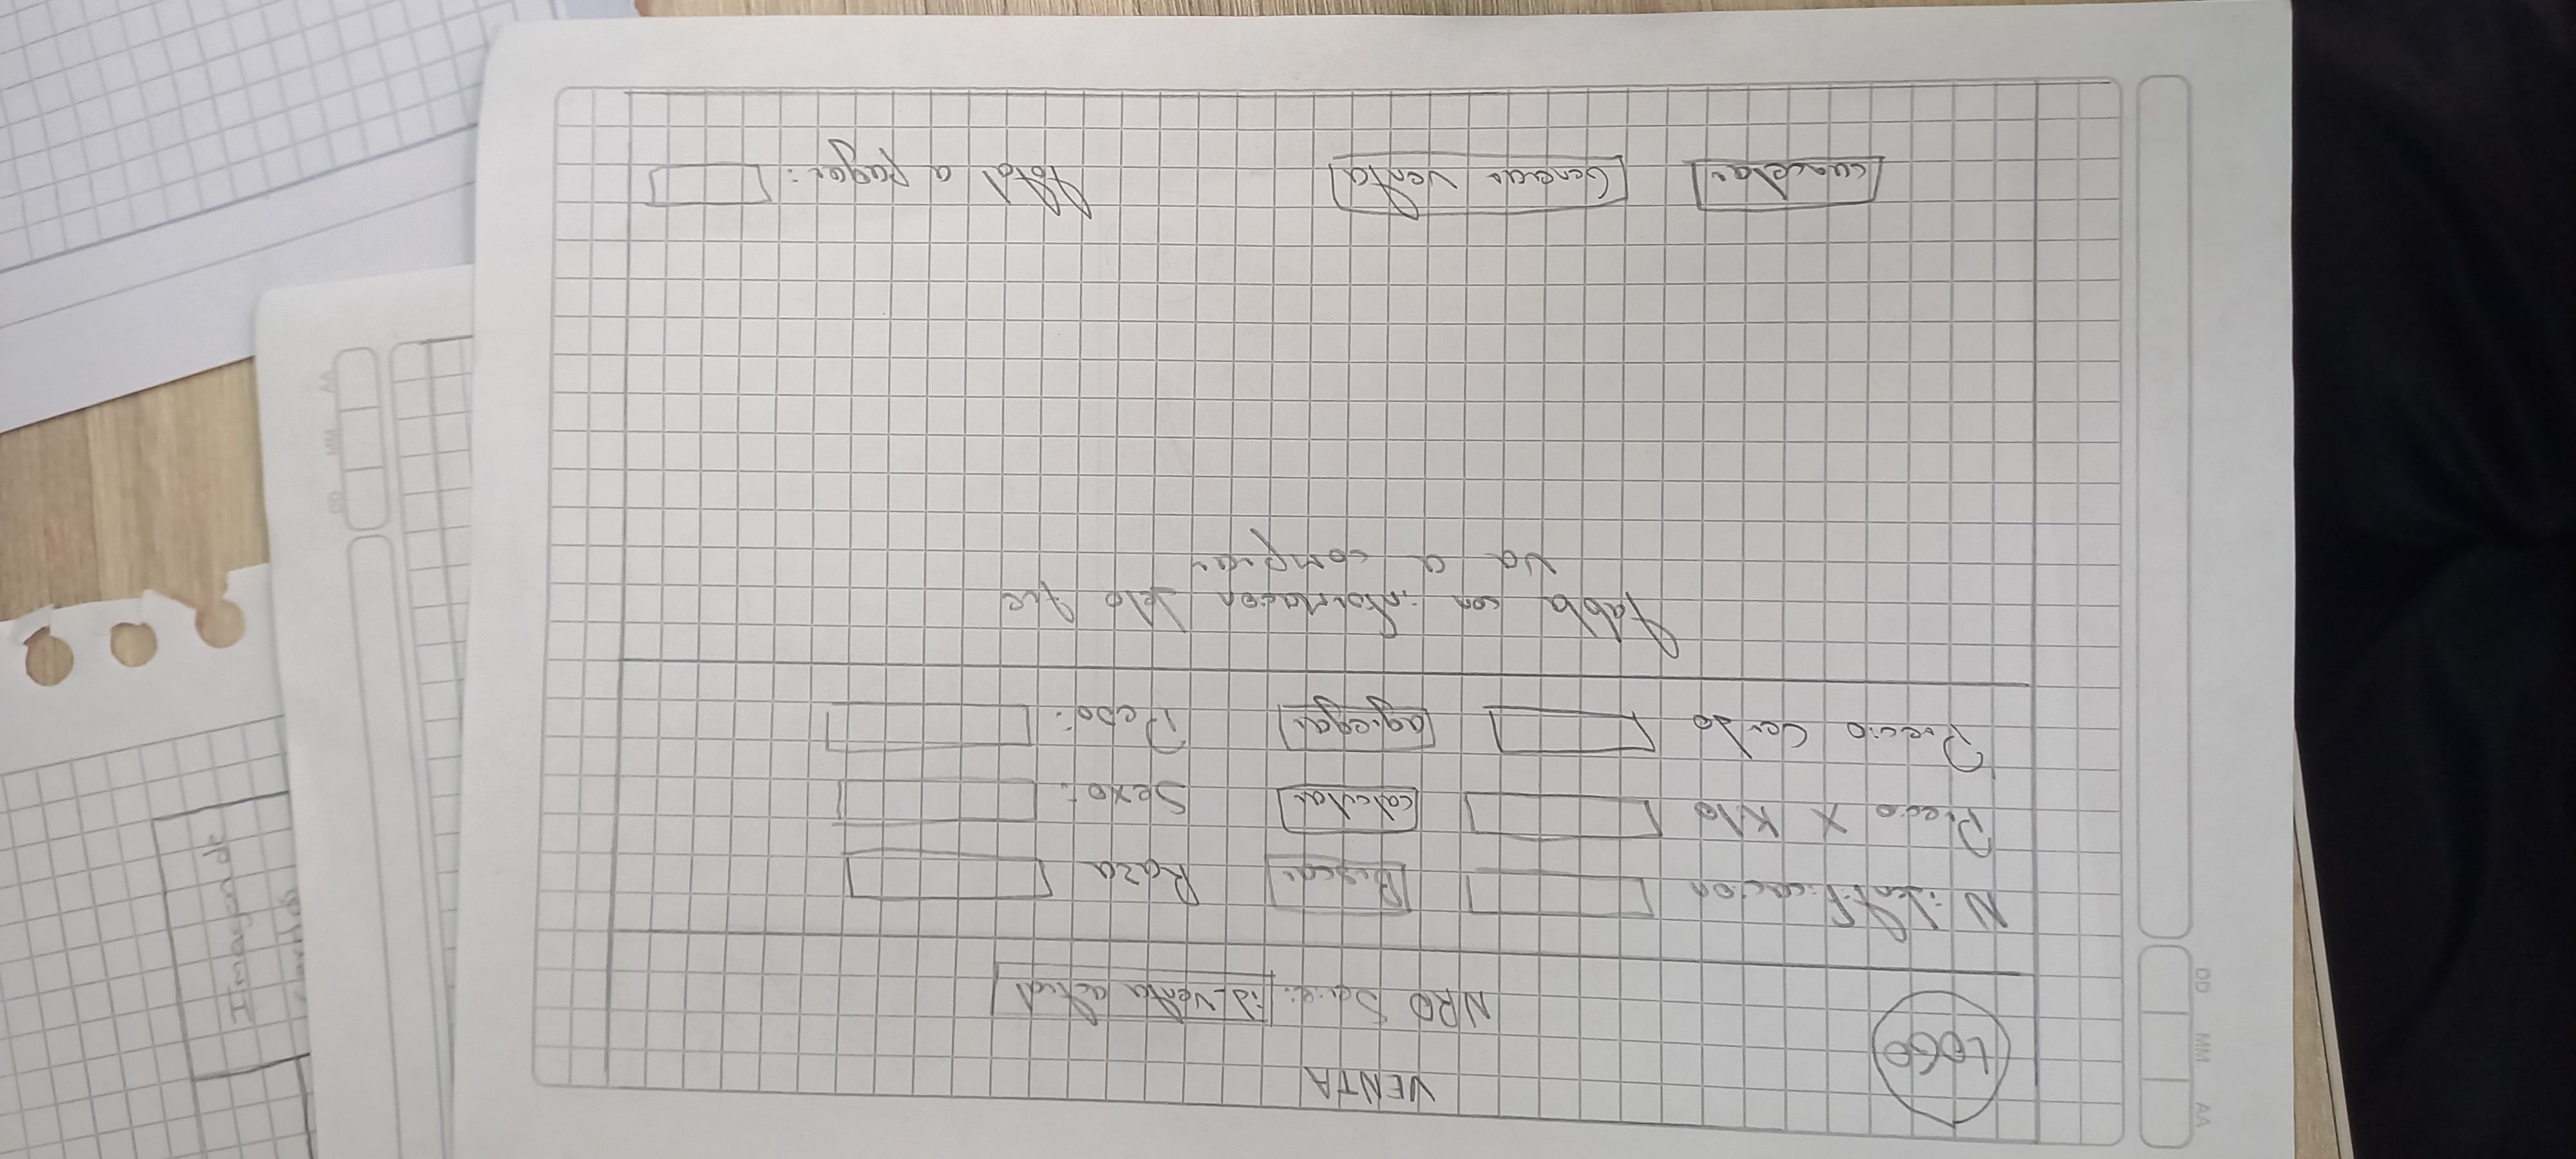 LOGO
VENTA
NRO Serie: id_venta actual
N identificacion Buscar Raza
Precio X Kilo calcular Sexo:
Precio Cerdo agregar Peso:
tabla con informacion delo que
va a comprar
cancelar Generar venta total a pagar:
AA
MM
DD
Imagen de
DD
MM
AA